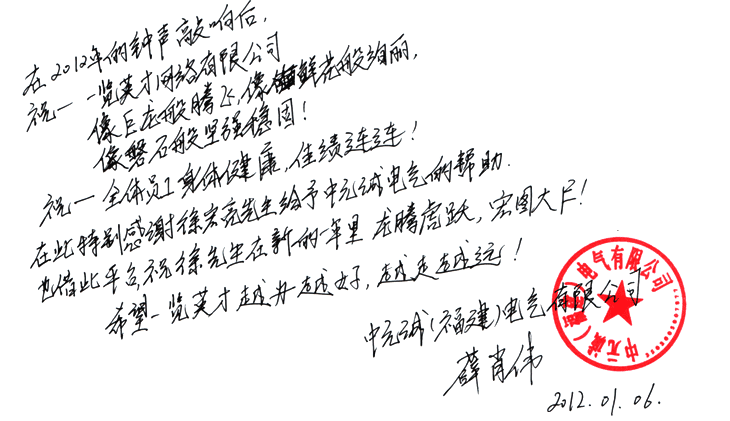 在2012年的钟声敲响后，
祝——一览英才网络有限公司
像巨龙般腾飞，像鲜花般绚丽，
像磐石般坚强稳固！
祝——全体员工身体健康，佳绩连连！
在此特别感谢徐宏亮先生给予中元诚电气的帮助．
也借此平台祝徐先生在新的年里龙腾虎跃，宏图大展！
希望一览英才越办越好，越走越远！
中元诚(福建)电气有限公司
薛肖伟
2012.01.06.
中元诚（福建）电气有限公司